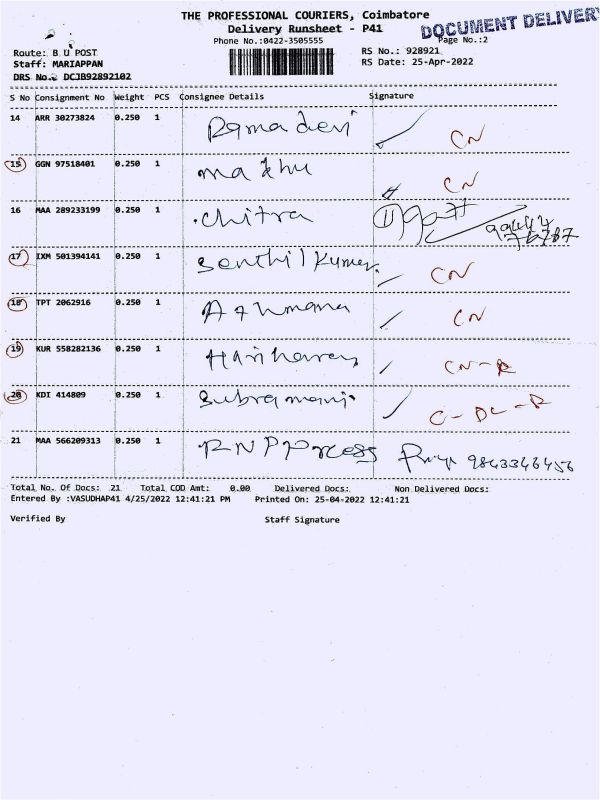 THE PROFESSIONAL COURIERS, Coimbatore
Delivery Runsheet - P41
DOCUMENT DELIVERY
Phone No.:0422-3505555
Page No.:2
Route: B U POST
RS No.: 928921
Staff: MARIAPPAN
RS Date: 25-Apr-2022
DRS No.: DCJB92892102
S No Consignment No Weight PCS Consignee Details Signature
14 ARR 30273824 0.250 1 Rama devi CN
15 GGN 97518401 0.250 1 madhu CN
16 MAA 289233199 0.250 1 .chitra
17 IXM 501394141 0.250 1 Senthil Kumar. CN
18 TPT 2062916 0.250 1 CN
19 KUR 558282136 0.250 1 Hariharan CN-R
20 KDI 414809 0.250 1 Subramani. C-DL-R
21 MAA 566209313 0.250 1 RNP Process 9843346456
Total No. Of Docs: 21 Total COD Amt: 0.00 Delivered Docs: Non Delivered Docs:
Entered By :VASUDHAP41 4/25/2022 12:41:21 PM Printed On: 25-04-2022 12:41:21
Verified By Staff Signature